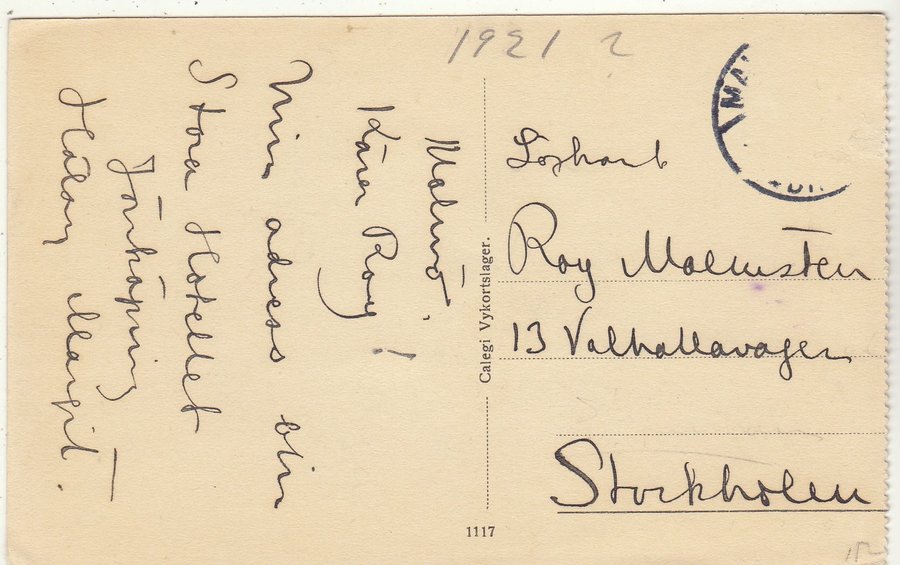 1921 ?
Malmö.
Kära Roy!
Min adress blir
Stora Hotellet
Jönköping
Hälsn Margit.
Calegi Vykortslager.
1117
Roy Malmsten
13 Valhallavägen
Stockholm